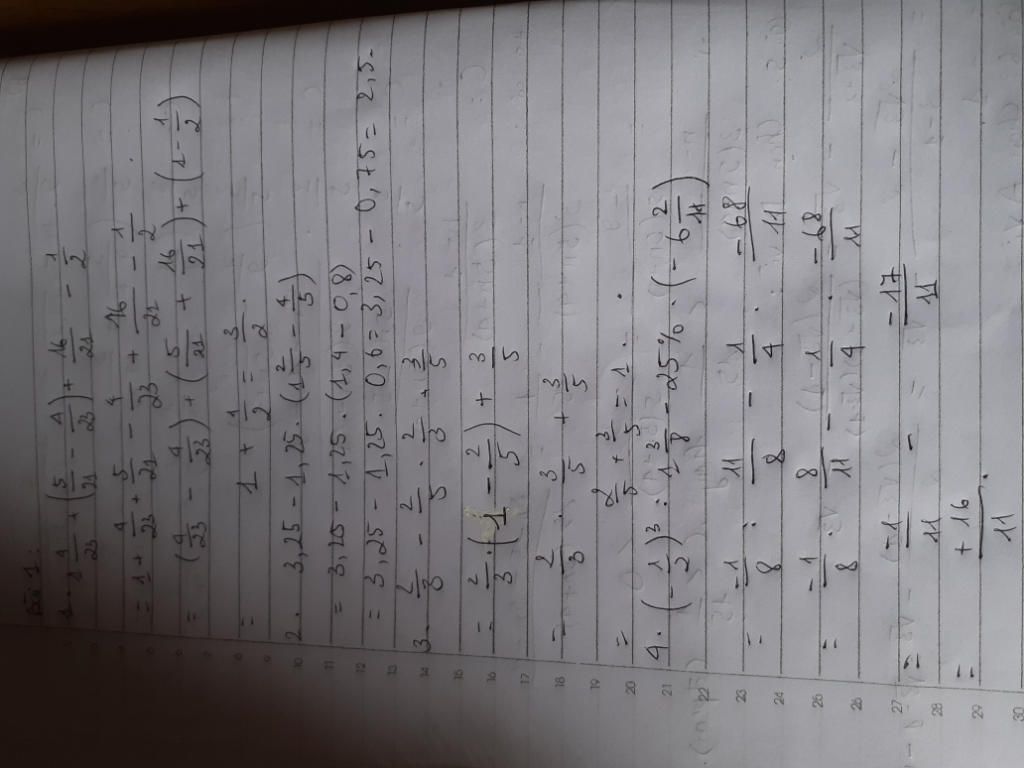 Bài 1:
1. 1 4/23 + (5/21 - 4/23) + 16/21 - 1/2
= 1 + 4/23 + 5/21 - 4/23 + 16/21 - 1/2.
= (4/23 - 4/23) + (5/21 + 16/21) + (1 - 1/2)
= 1 + 1/2 = 3/2.
2. 3,25 - 1,25 . (1 2/5 - 4/5)
= 3,25 - 1,25 . (1,4 - 0,8)
= 3,25 - 1,25 . 0,6 = 3,25 - 0,75 = 2,5.
3. 2/3 - 2/5 . 2/3 + 3/5
= 2/3 . (1 - 2/5) + 3/5
= 2/3 . 3/5 + 3/5
= 2/5 + 3/5 = 1.
4. (-1/2)³ : 1 3/8 - 25% . (-6 2/11)
= -1/8 : 11/8 - 1/4 . -68/11
= -1/8 . 8/11 - 1/4 . -68/11
= -1/11 - -17/11
= +16/11.
22
23
24
25
26
27
28
29
30